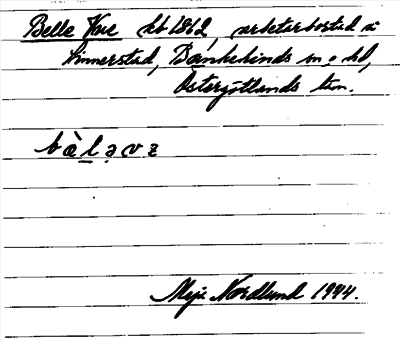 Belle Vue kb 1862, arbetarbostad å
Sinnerstad, Bankekinds sn o hd,
Östergötlands län.
bὰl̲əvɛ
Meji Nordlund 1944.